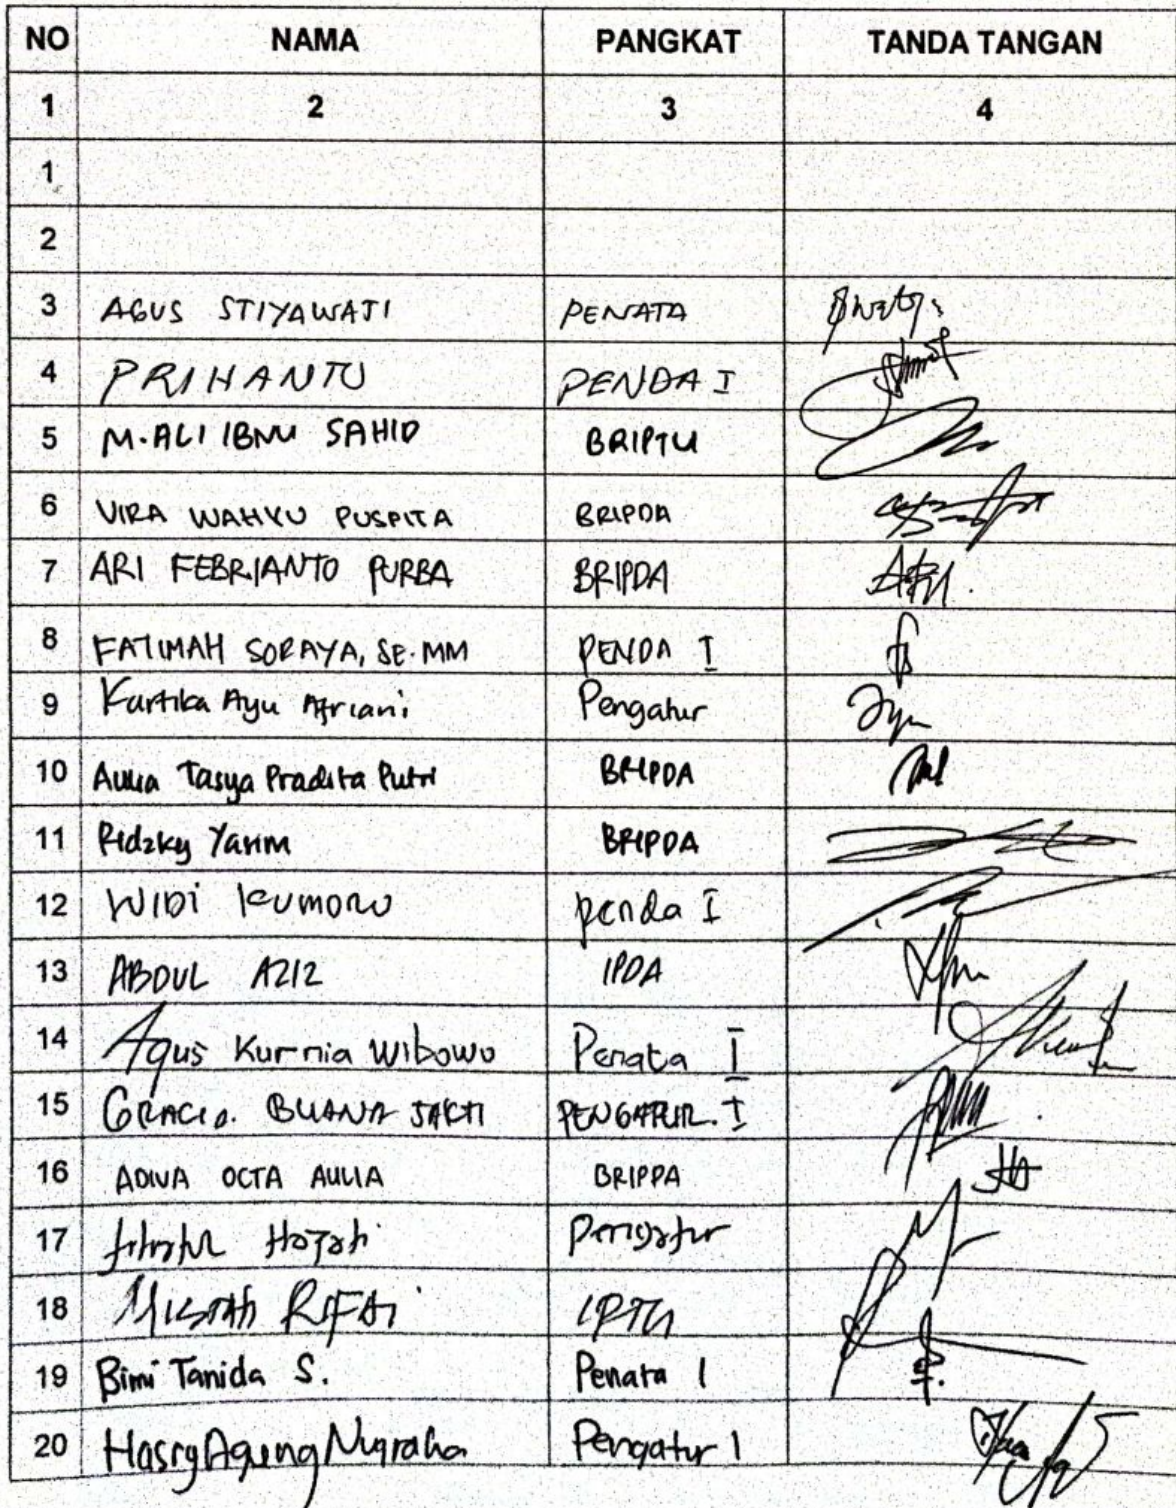 NO NAMA PANGKAT TANDA TANGAN
1 2 3 4
1
2
3 AGUS STIYAWATI PENATA
4 PRIHANTO PENDA I
5 M. ALI IBNU SAHID BRIPTU
6 VIRA WAHYU PUSPITA BRIPDA
7 ARI FEBRIANTO PURBA BRIPDA
8 FATIMAH SORAYA, SE. MM PENDA I
9 Kartika Ayu Afriani Pengatur
10 Aulia Tasya Pradita Putri BRIPDA
11 Ridzky Yarim BRIPDA
12 WIDI KUMORO penda I
13 ABDUL AZIZ IPDA
14 Agus Kurnia Wibowo Penata I
15 GRACIA BUANA SAKTI PENGATUR. I
16 ADIVA OCTA AULIA BRIPDA
17 Hayati Pengatur
18 RIFAI IPTU
19 Bimi Tanida S. Penata 1
20 Hasry Agung Nugraha Pengatur 1